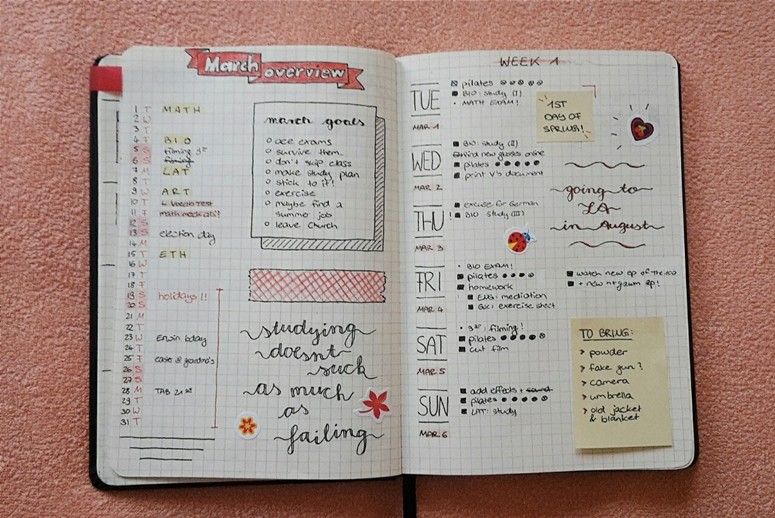 March overview
1 T MATH
2 W
3 T
4 F BIO
5 S filming 3rd
6 S filming
7 M LAT
8 T
9 W ART
10 T
11 F
12 S
13 S election day
14 M
15 T ETH
16 W
17 T
18 F
19 S holidays!!
20 S
21 M
22 T
23 W Erwin bday
24 T
25 F
26 S
27 S
28 M TAB 21st
29 T
30 W
31 T
march goals
o ace exams
o survive them
o don't skip class
o make study plan
o stick to it!
o exercise
o maybe find a
summer job
o leave church
studying
doesnt
suck
as much
as
failing
WEEK 1
TUE
MAR 1
pilates
BIO: study (I)
MATH EXAM!
1ST
DAY OF
SPRING!
WED
MAR 2
BIO: study (II)
find new glasses online
pilates
print V's document
THU
MAR 3
! excuse for German
BIO: study (III)
going to
LA
in August
FRI
MAR 4
BIO EXAM!
pilates
homework
ENG: mediation
exercise sheet
watch new ep of the 100
+ new ep!
SAT
MAR 5
3rd: filming!
pilates
cut film
SUN
MAR 6
add effects + sound
pilates
LAT: study
TO BRING:
> powder
> fake gun?
> camera
> umbrella
> old jacket
& blanket